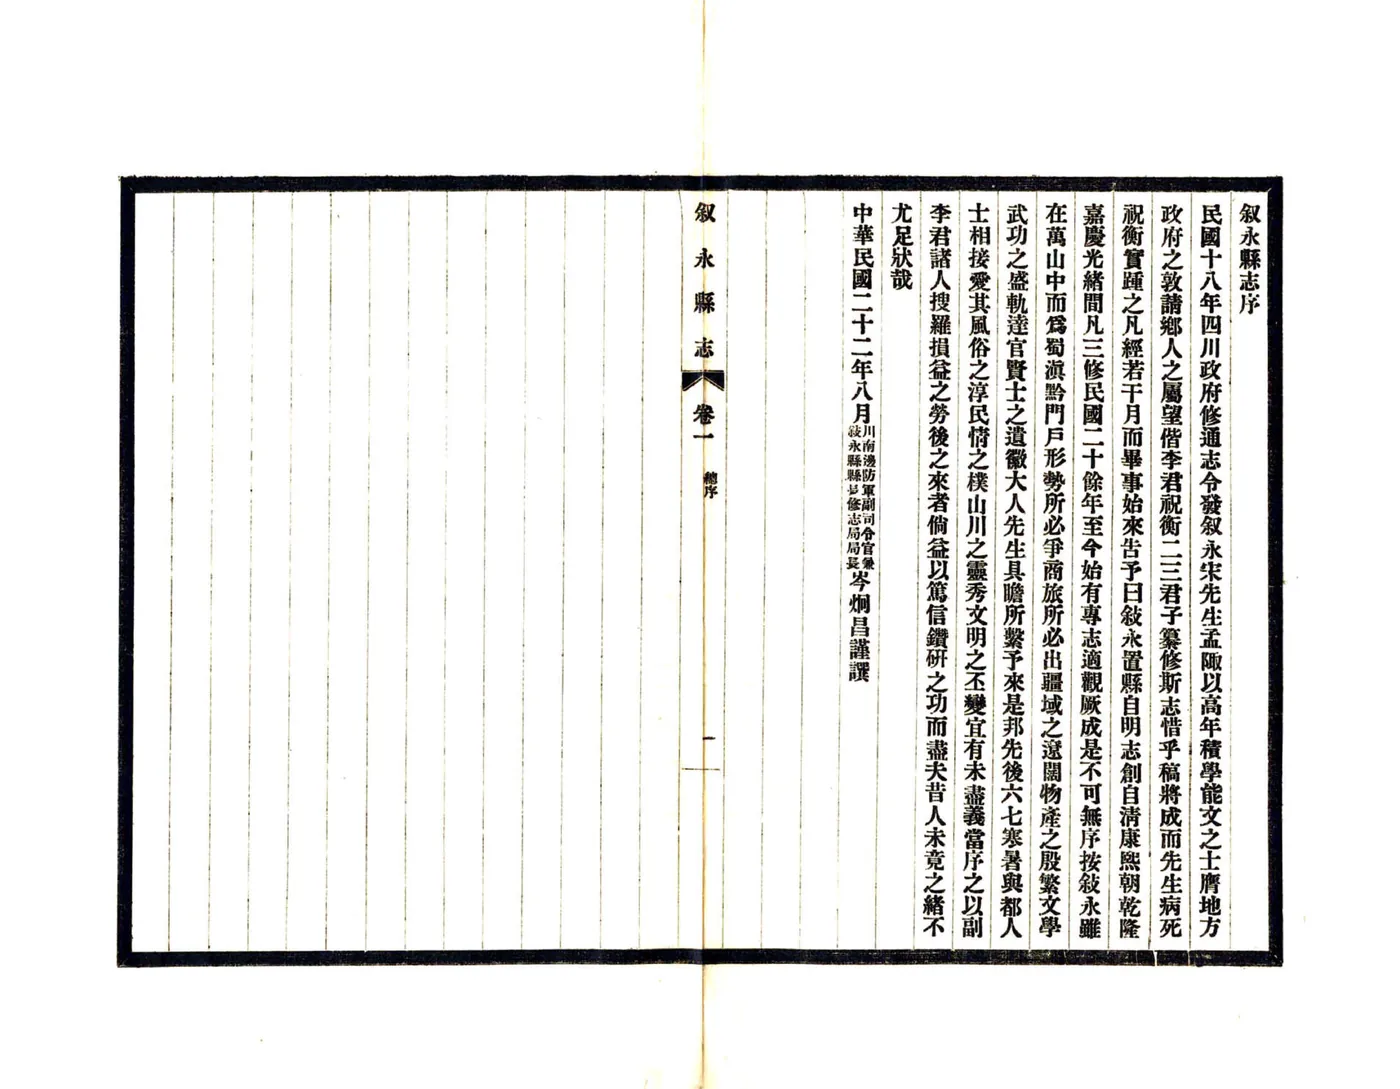 叙永縣志序
民國十八年四川政府修通志令發叙永宋先生孟陬以高年積學能文之士膺地方
政府之敦請鄉人之屬望偕李君祝衡二三君子纂修斯志惜乎稿將成而先生病死
祝衡實踵之凡經若干月而畢事始來吿予曰敍永置縣自明志創自淸康熙朝乾隆
嘉慶光緒間凡三修民國二十餘年至今始有專志適觀厥成是不可無序按敍永雖
在萬山中而爲蜀滇黔門戶形勢所必爭商旅所必出疆域之遼闊物產之殷繁文學
武功之盛軌達官賢士之遺徽大人先生具瞻所繫予來是邦先後六七寒暑與都人
士相接愛其風俗之淳民情之樸山川之靈秀文明之丕變宜有未盡義當序之以副
李君諸人搜羅損益之勞後之來者倘益以篤信鑽研之功而盡夫昔人未竟之緒不
尤足狀哉
中華民國二十二年八月川南邊防軍副司令官兼敍永縣縣長修志局局長岑炯昌謹譔
叙永縣志 卷一 總序 一